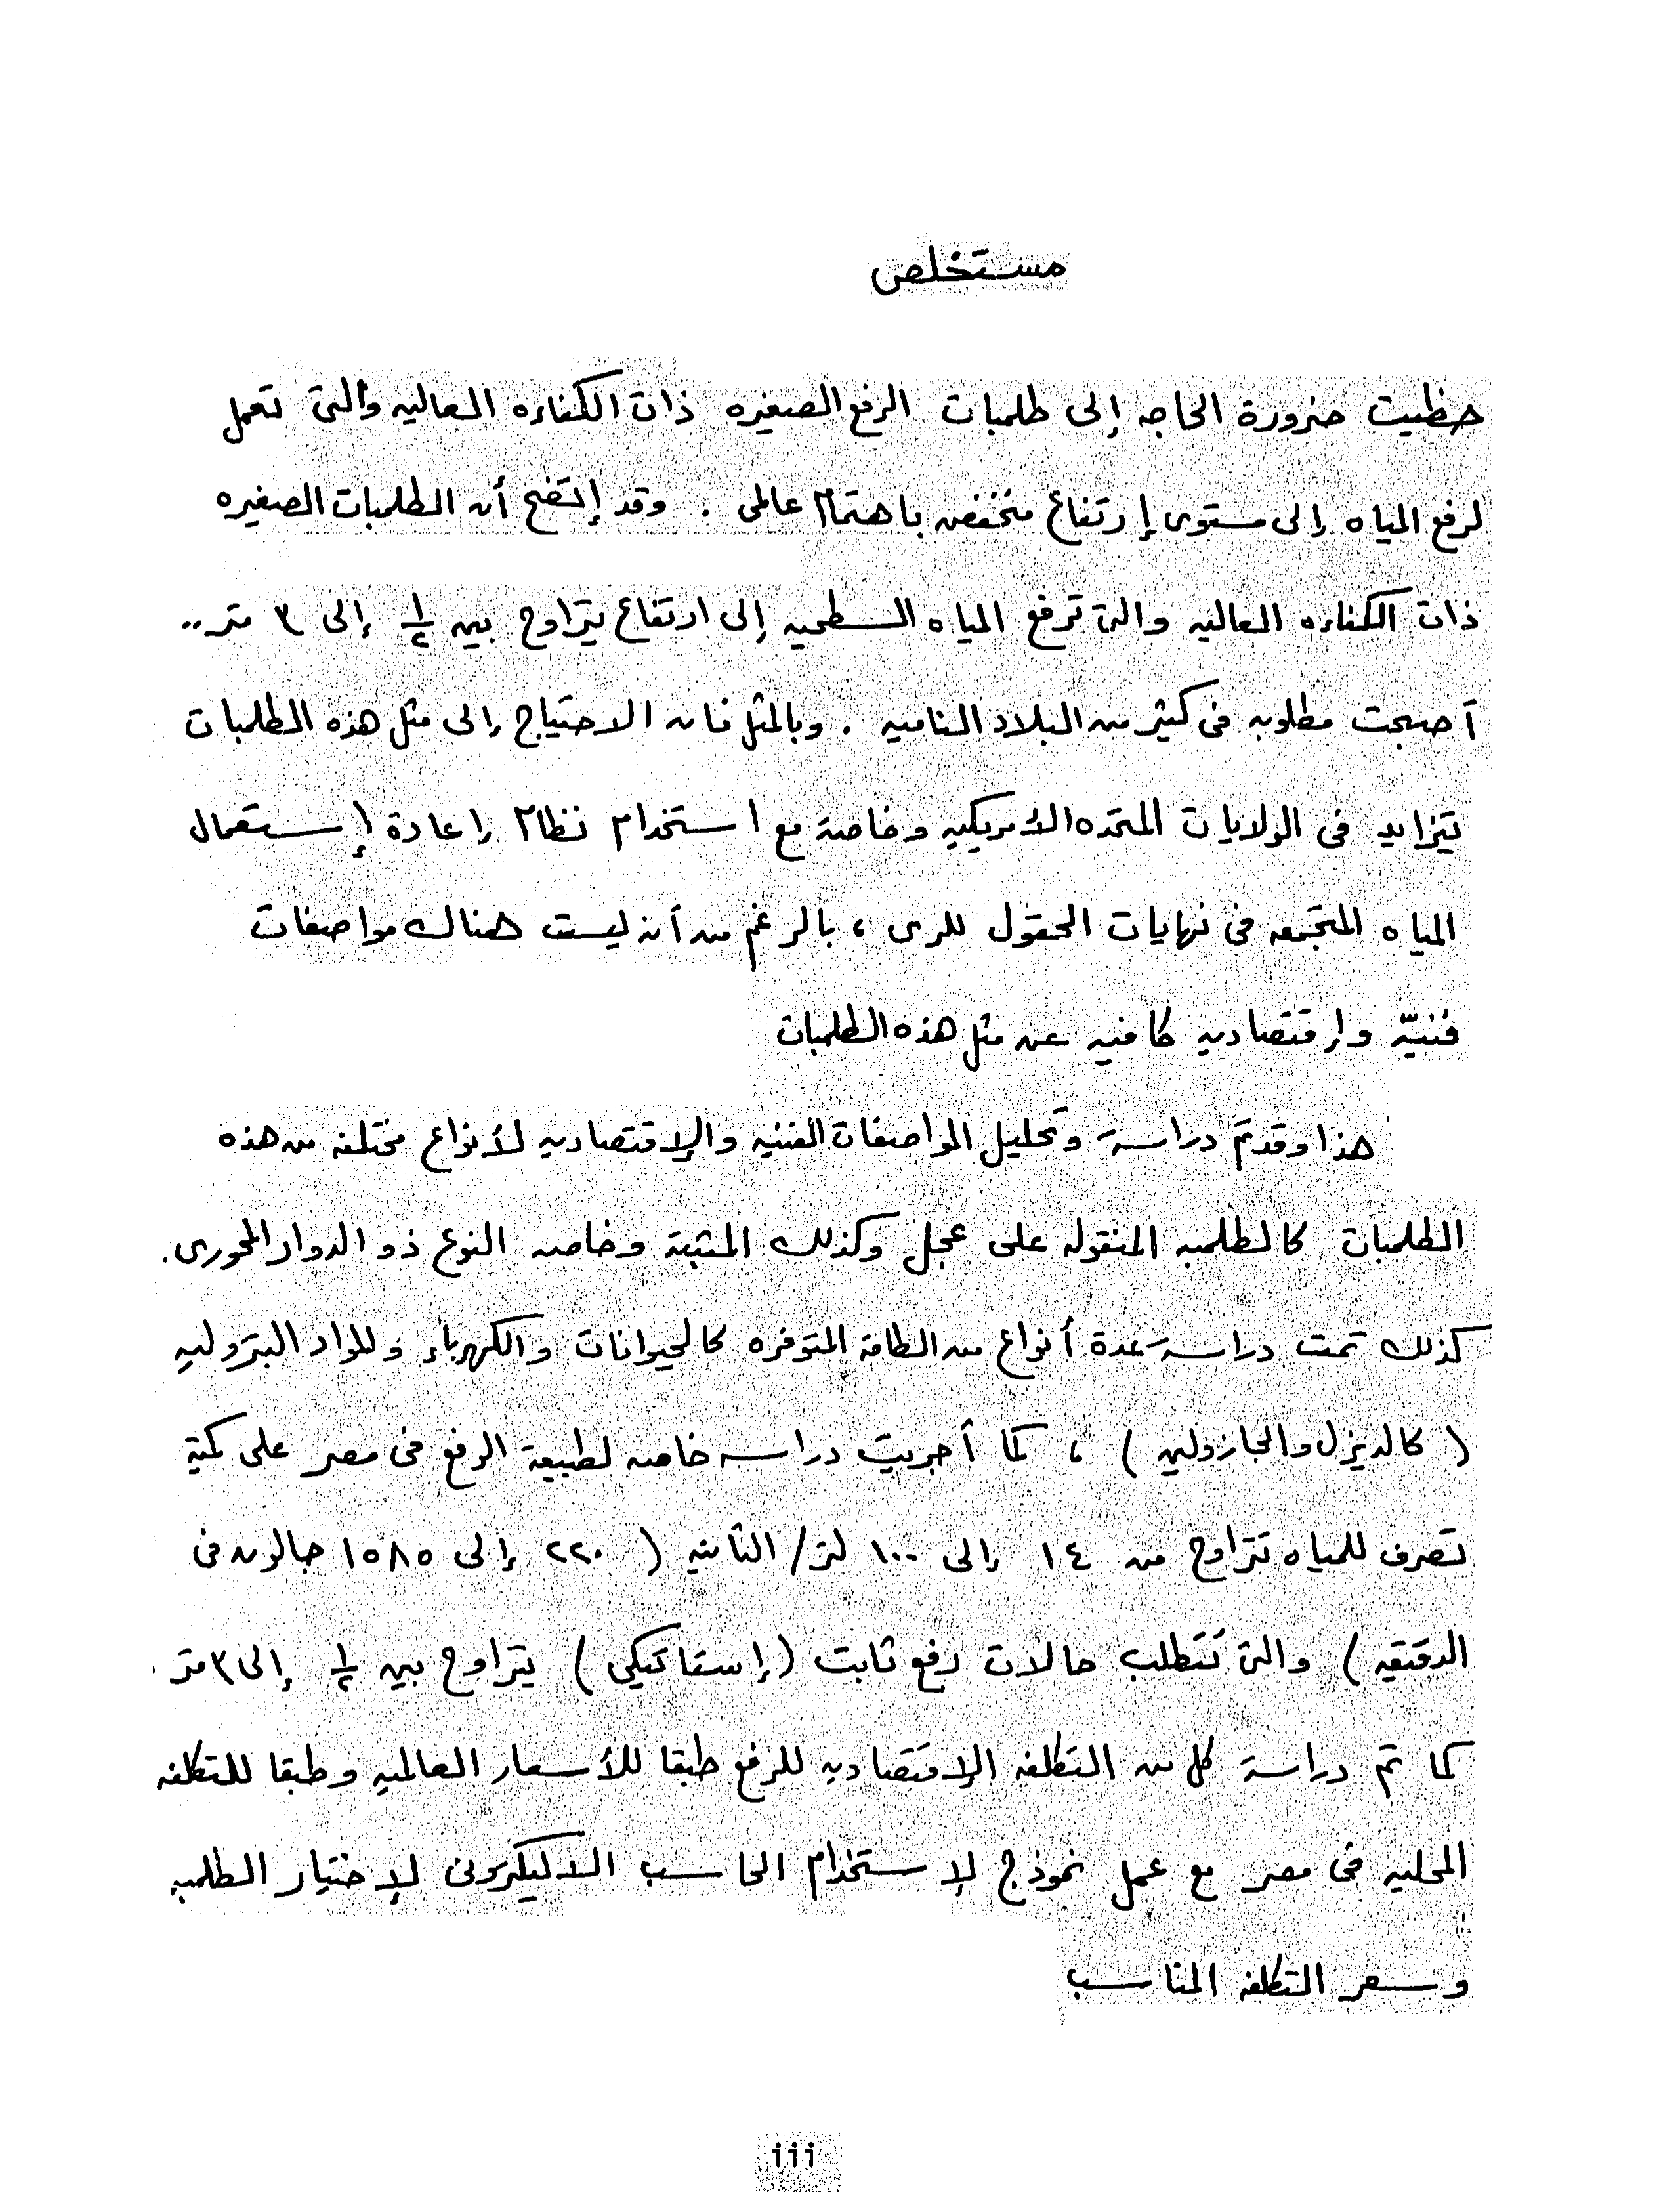 مستخلص
حظيت ضرورة الحاجه إلى طلمبات الرفع الصغيره ذات الكفاءه العاليه والتى تعمل
لرفع المياه إلى مستوى إرتفاع منخفض باهتمام عالمى . وقد إتضح أن الطلمبات الصغيره
ذات الكفاءه العاليه والتى ترفع المياه السطحيه إلى ارتفاع يتراوح بين ١/٢ إلى ٣ متر..
أصبحت مطلوبه فى كثير من البلاد الناميه . وبالمثل فان الاحتياج إلى مثل هذه الطلمبات
تيزايد فى الولايات المتحده الأمريكيه وخاصة مع استخدام نظام إعادة إستعمال
المياه المتجمعه فى نهايات الحقول للرى ، بالرغم من أنه ليست هناك مواصفات
فنيّه وإقتصاديه كافيه عن مثل هذه الطلمبات
هذا وقد تم دراسة وتحليل المواصفات الفنيه والإقتصاديه لأنواع مختلفه من هذه
الطلمبات كالطلمبه المنقوله على عجل وكذلك المثبتة وخاصه النوع ذو الدوار المحورى.
كذلك تمت دراسة عدة أنواع من الطاقة المتوفره كالحيوانات والكهرباء وللمواد البتروليه
( كالديزل والجازولين ) ، كما أجريت دراسه خاصه لطبيعة الرفع فى مصر على كمية
تصرف للمياه تتراوح من ١٤ إلى ١٠٠ لتر/ الثانيه ( ٢٢٠ إلى ١٥٨٥ جالون فى
الدقيقه ) والتى تتطلب حالات رفع ثابت (إستاتيكى ) يتراوح بين ١/٢ إلى ٣ متر .
كما تم دراسة كل من التكلفه الإقتصاديه للرفع طبقا للأسعار العالميه وطبقا للتكلفه
المحليه فى مصر مع عمل نموذج لإستخدام الحاسب الاليكترونى لإختيار الطلمبه
وسعر التكلفه المناسب
iii